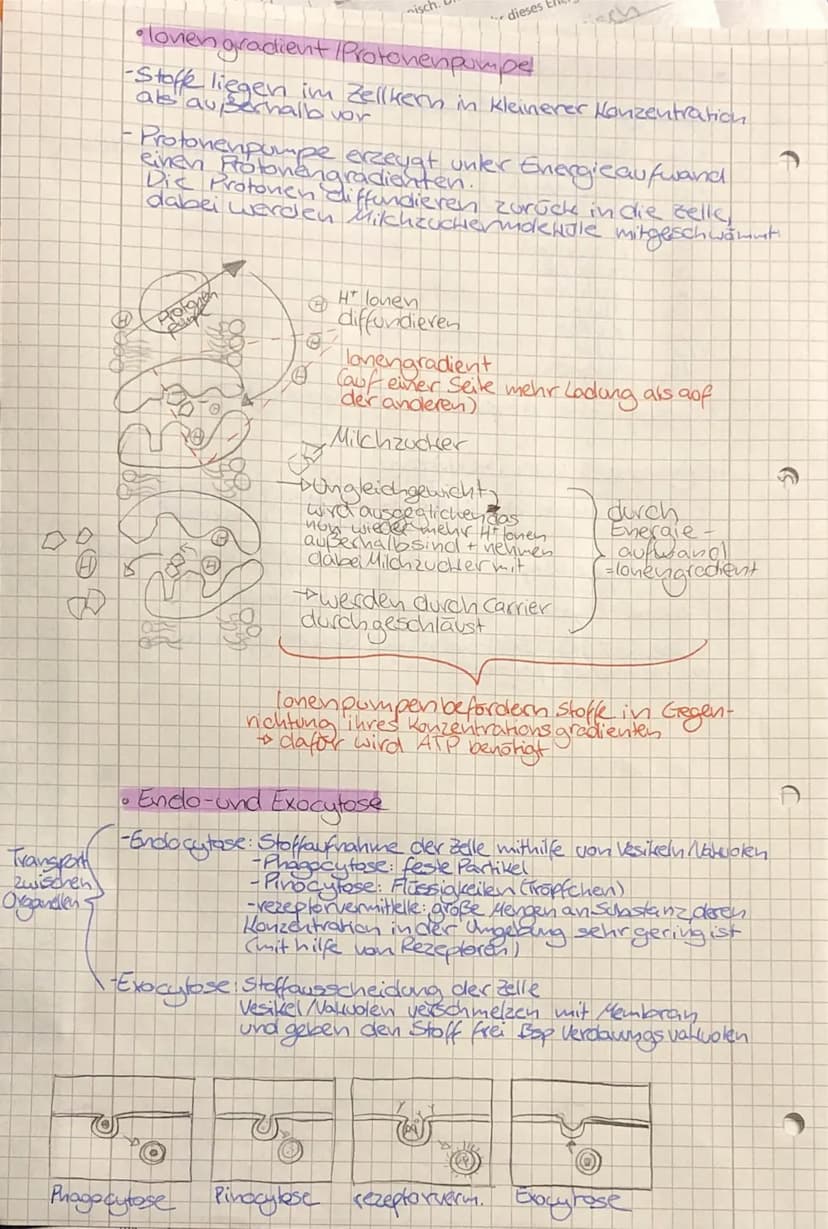 nisch.
dieses
• Ionengradient / Protonenpumpe
- Stoffe liegen im Zellkern in kleinerer Konzentration
als außerhalb vor
- Protonenpumpe erzeugt unter Energieaufwand
einen Protonengradienten.
Die Protonen diffundieren zurück in die Zelle,
dabei werden Milchzuckermoleküle mitgeschwämmt
Protonen
pumpe
H⁺ Ionen
diffundieren
Ionengradient
(auf einer Seite mehr Ladung als auf
der anderen)
Milchzucker
→ Ungleichgewicht
wird ausgeglichen, das
nun wieder mehr H⁺ Ionen
außerhalb sind + nehmen
dabei Milchzucker mit
→ werden durch Carrier
durchgeschläust
durch
Energie-
aufwand
= Ionengradient
Ionenpumpen befördern Stoffe in Gegen-
richtung ihres Konzentrationsgradienten
→ dafür wird ATP benötigt
• Endo- und Exocytose
Transport
zwischen
Organellen
- Endocytose: Stoffaufnahme der Zelle mithilfe von Vesikeln/Vakuolen
- Phagocytose: feste Partikel
- Pinocytose: Flüssigkeiten (Tröpfchen)
- rezeptorvermittelte: große Mengen an Substanz, deren
Konzentration in der Umgebung sehr gering ist
(mit hilfe von Rezeptoren)
- Exocytose: Stoffausscheidung der Zelle
Vesikel/Vakuolen verschmelzen mit Membran
und geben den Stoff frei Bsp Verdauungsvakuolen
Phagocytose Pinocytose rezeptorverm. Exocytose